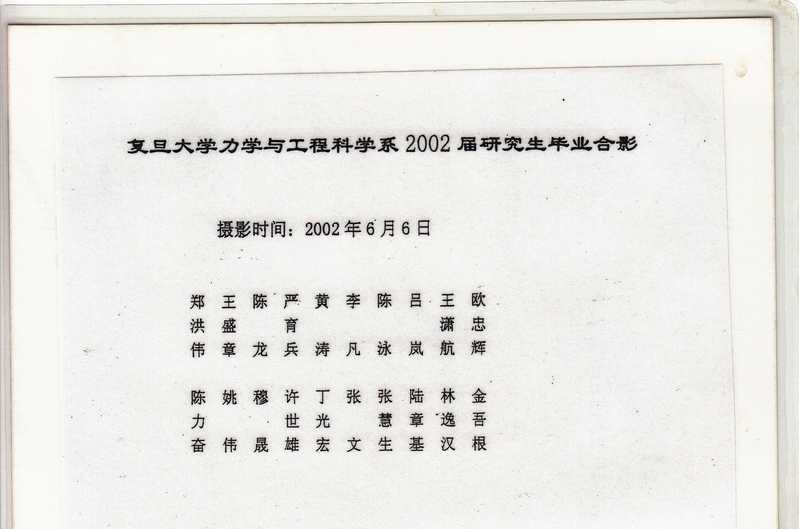 复旦大学力学与工程科学系2002届研究生毕业合影
摄影时间：2002年6月6日
郑 王 陈 严 黄 李 陈 吕 王 欧
洪 盛 育 潇 忠
伟 章 龙 兵 涛 凡 泳 岚 航 辉
陈 姚 穆 许 丁 张 张 陆 林 金
力 世 光 慧 章 逸 吾
奋 伟 晟 雄 宏 文 生 基 汉 根